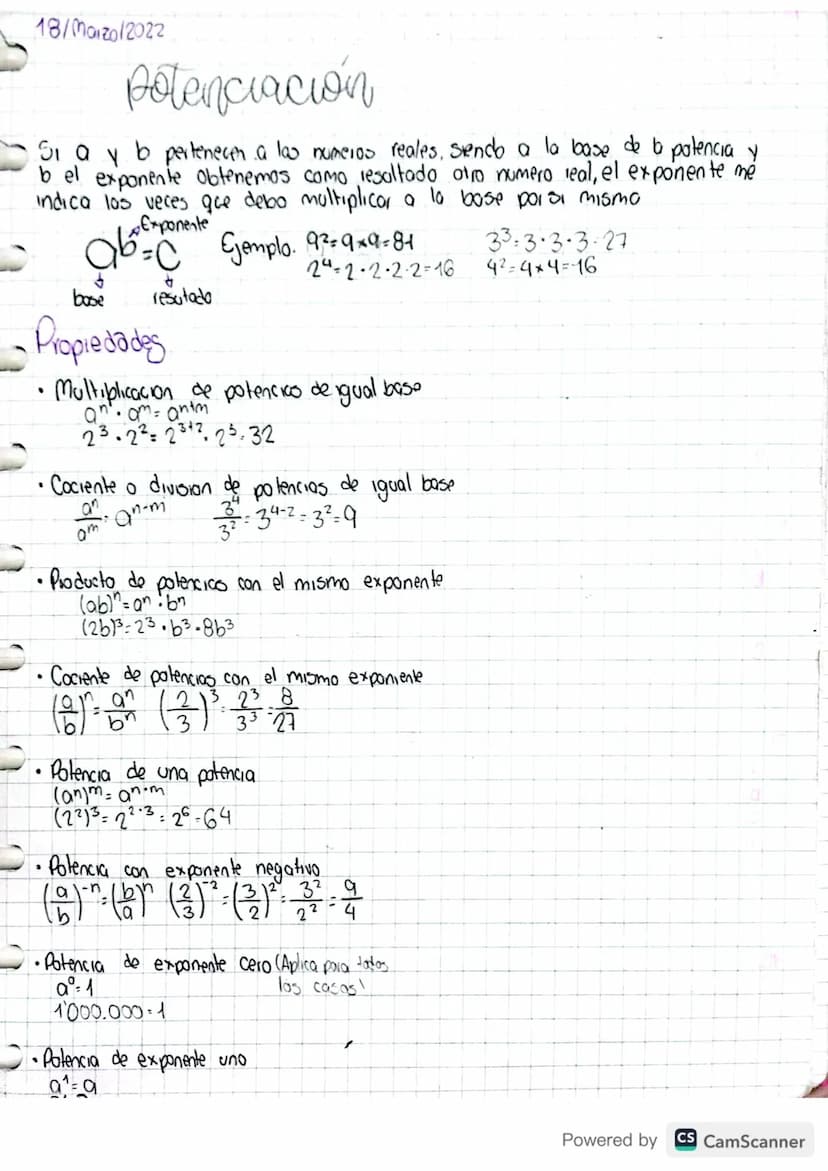 18/Marzo/2022
Potenciación
Si a y b pertenecen a los numeros reales, siendo a la base de b potencia y
b el exponente obtenemos como resultado otro numero real, el exponente me
indica las veces que debo multiplicar a la base por si mismo
Exponente
aᵇ=c Ejemplo. 9²=9×9=81 3³=3·3·3=27
2⁴=2·2·2·2=16 4²=4×4=16
base resutado
Propiedades
• Multiplicacion de potencias de igual base
aⁿ · aᵐ = aⁿ⁺ᵐ
2³ · 2² = 2³⁺² = 2⁵ = 32
• Cociente o division de potencias de igual base
aⁿ/aᵐ = aⁿ⁻ᵐ 3⁴/3² = 3⁴⁻² = 3² = 9
• Producto de potencias con el mismo exponente
(ab)ⁿ = aⁿ · bⁿ
(2b)³ = 2³ · b³ = 8b³
• Cociente de potencias con el mismo exponente
(a/b)ⁿ = aⁿ/bⁿ (2/3)³ = 2³/3³ = 8/27
• Potencia de una potencia
(aⁿ)ᵐ = aⁿ·ᵐ
(2²)³ = 2²·³ = 2⁶ = 64
• Potencia con exponente negativo
(a/b)⁻ⁿ = (b/a)ⁿ (2/3)⁻² = (3/2)² = 3²/2² = 9/4
• Potencia de exponente cero (Aplica para todos
los casos)
a⁰ = 1
1'000.000 = 1
• Potencia de exponente uno
a¹ = a
Powered by CS CamScanner